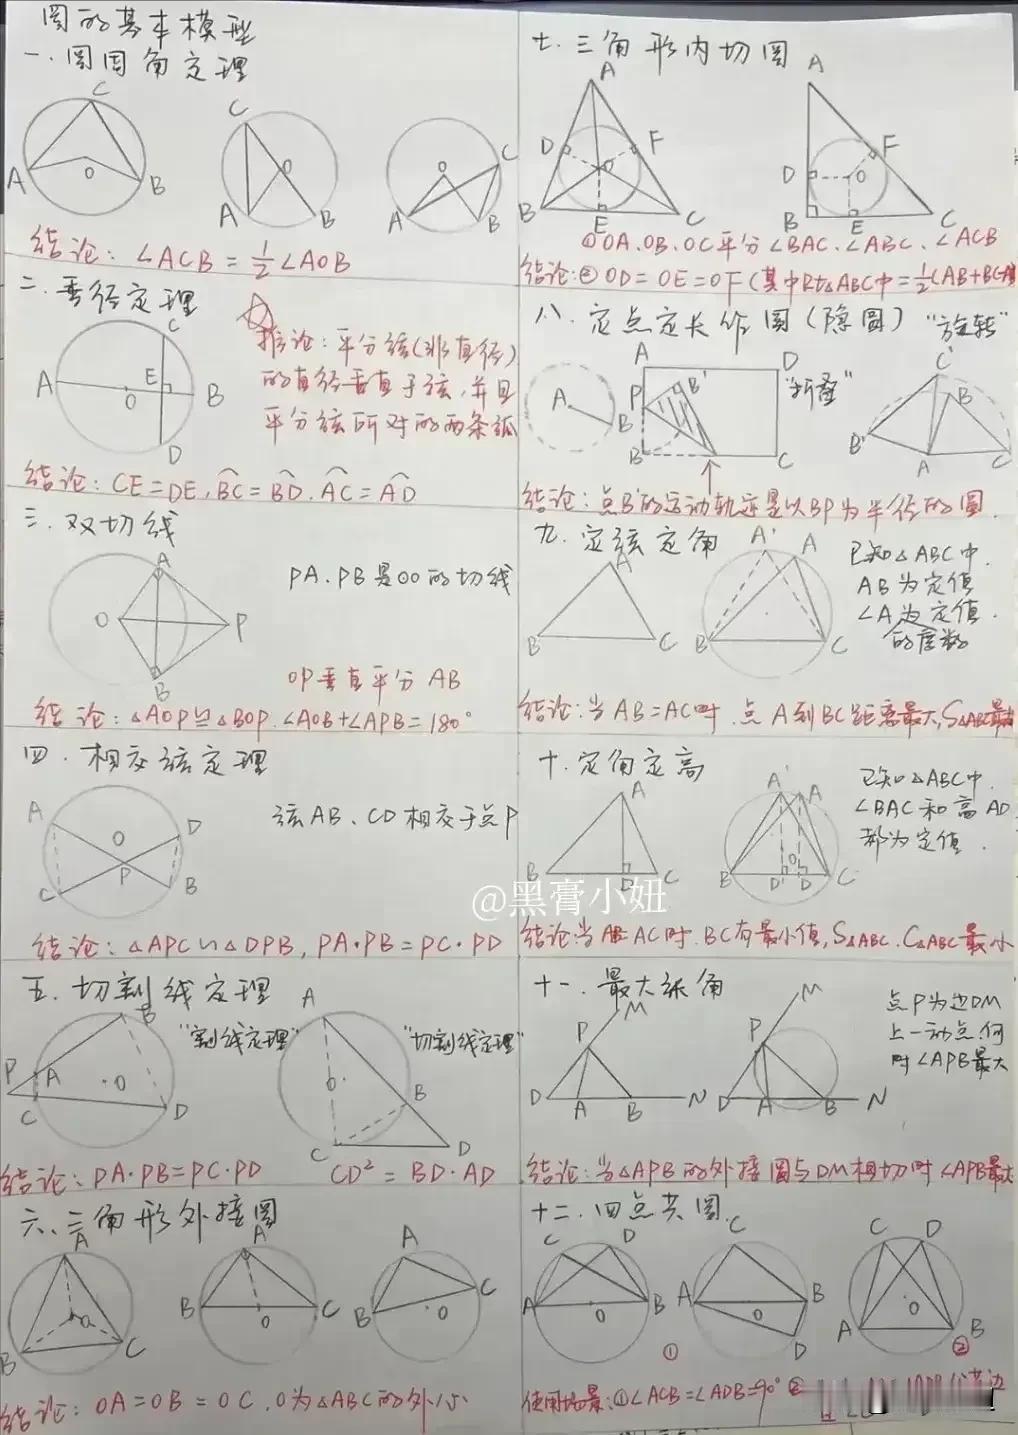 圆的基本模型
一.圆周角定理
C
A O B
C
O
A B
O C
A B
结论: ∠ACB = 1/2 ∠AOB
二.垂径定理
C
A E B
O
D
推论: 平分弦(非直径)
的直径垂直于弦,并且
平分弦所对的两条弧
结论: CE=DE, BC⌒=BD⌒, AC⌒=AD⌒
三.双切线
A
O P
B
PA.PB是⊙O的切线
OP垂直平分AB
结论: △AOP≌△BOP. ∠AOB+∠APB=180°
四.相交弦定理
A O D
P
C B
弦AB、CD相交于点P
结论: △APC∽△DPB, PA·PB=PC·PD
五.切割线定理
B
"割线定理"
P A O
C D
A
"切割线定理"
O
B
C D
结论: PA·PB=PC·PD
CD²=BD·AD
六、三角形外接圆
A
O
B C
A
B O C
A
C
B O
结论: OA=OB=OC, O为△ABC的外心
七.三角形内切圆
A
D F
O
B E C
A
F
D O
B E C
①OA.OB.OC平分∠BAC.∠ABC.∠ACB
结论:②OD=OE=OF(其中Rt△ABC中=1/2(AB+BC-A
八.定点定长作圆(隐圆)
"旋转"
A
B
A D
P B'
B C
"折叠"
C'
B
B' A C
结论: 点B'的运动轨迹是以BP为半径的圆.
九.定弦定角
A
B C
A' A
B C
已知△ABC中.
AB为定值
∠A为定值.
的度数
结论:当AB=AC时.点A到BC距离最大,S△ABC最大
十.定角定高
A
B D C
A' A
O
B D' D C
已知△ABC中.
∠BAC和高AD
都为定值.
@黑膏小妞
结论:当AB=AC时.BC有最小值,S△ABC.C△ABC最小
十一.最大张角
M
P
D A B N
M
P
D A B N
点P为边DM
上一动点.何
时∠APB最大
结论:当△APB的外接圆与DM相切时∠APB最大
十二.四点共圆.
C D
A O B
C
A O B
D
①
C D
O
A B
②
使用场景:①∠ACB=∠ADB=90° ②